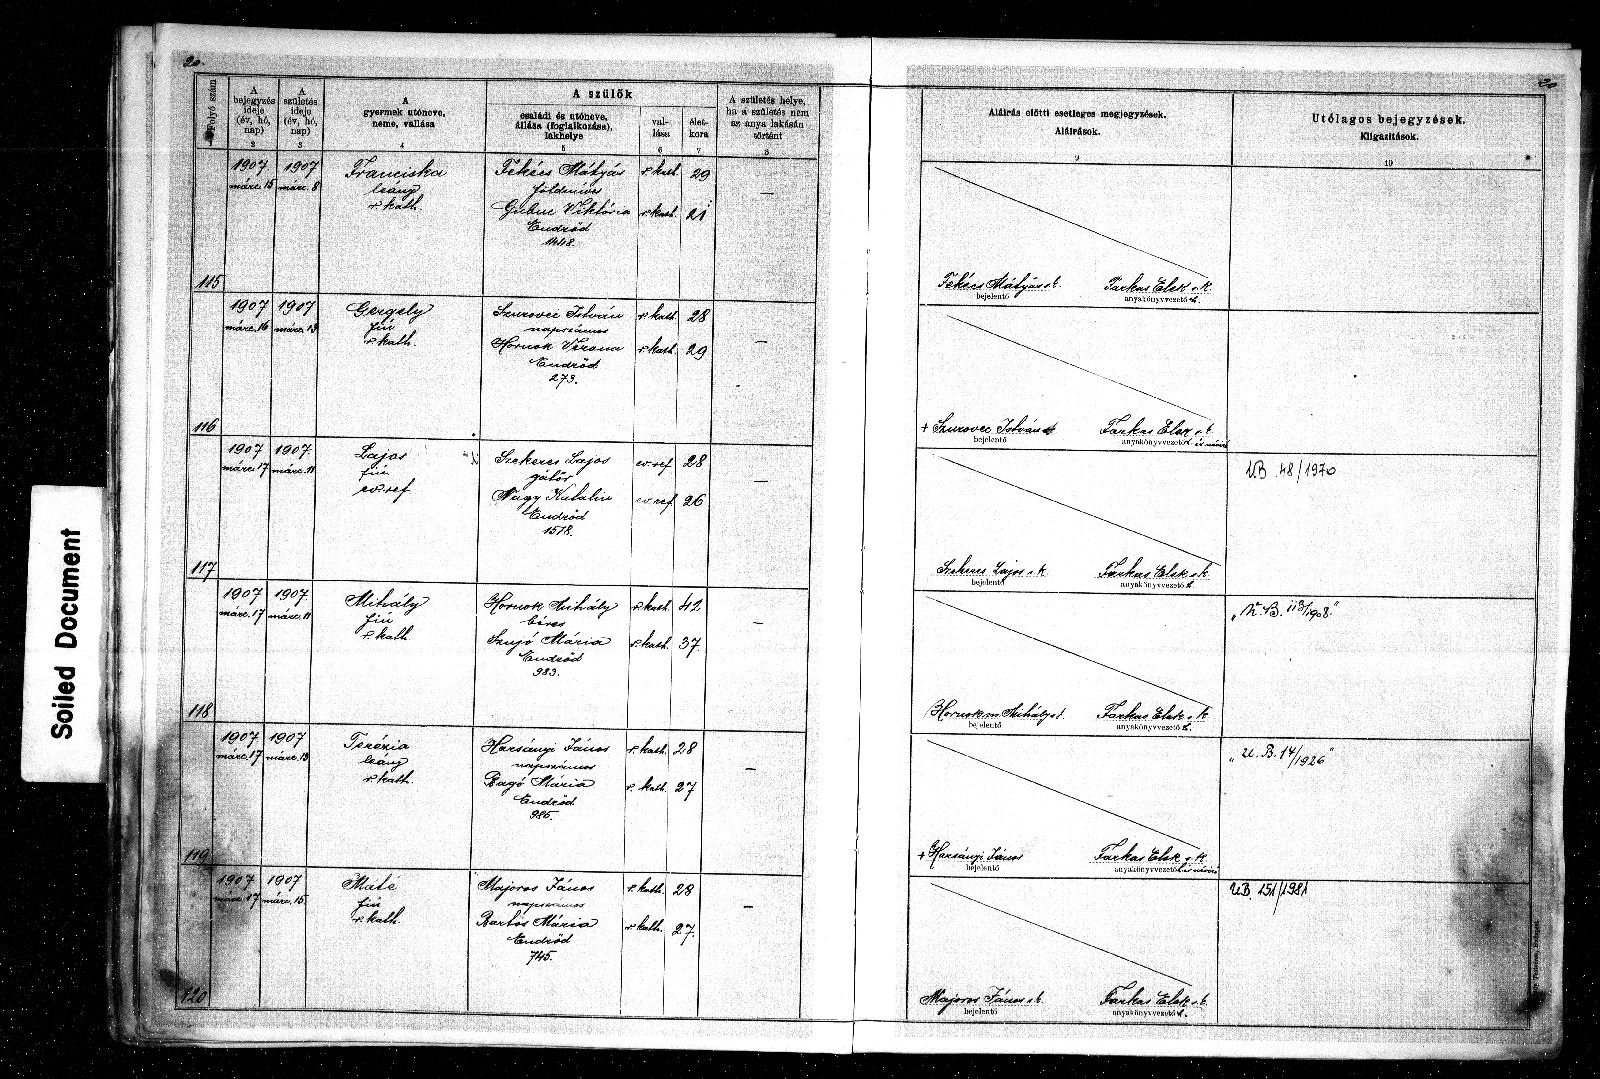 20.
20
Folyó szám
A bejegyzés ideje (év, hó, nap)
A születés ideje (év, hó, nap)
A gyermek utóneve, neme, vallása
A szülők
családi és utóneve, állása (foglalkozása), lakhelye
vallása
életkora
A születés helye, ha a születés nem az anya lakásán történt
Aláírás előtti esetleges megjegyzések.
Aláírások.
Utólagos bejegyzések.
Kiigazítások.
2 3 4 5 6 7 8 9 10
1907 1907 Franciska Fékécs Mátyás r. kath. 29 —
márc. 15 márc. 8 leány földmíves
r. kath. Gubuc Viktória r. kath. 21
Endrőd
1448.
115
Fékécs Mátyás s.k. Farkas Elek s. k.
bejelentő anyakönyvvezető h.
1907 1907 Gergely Szurovec István r. kath. 28 —
márc. 16 márc. 13 fiú napszámos
r. kath. Hornok Verona r. kath. 29
Endrőd
273.
116
+ Szurovec István Farkas Elek s. k.
bejelentő anyakönyvvezető h. és névíró
1907 1907 Lajos Szekeres Lajos ev. ref 28 —
márc. 17 márc. 11 fiú gátőr
ev. ref Nagy Katalin ev. ref 26
Endrőd
1578.
117
UB 48/1970
Szekeres Lajos s. k. Farkas Elek s. k.
bejelentő anyakönyvvezető h.
1907 1907 Mihály Hornok Mihály r. kath. 42 —
márc. 17 márc. 11 fiú béres
r. kath. Szujó Mária r. kath. 37
Endrőd
983.
118
"U. B. 113/1908."
Hornok m Mihály s. k. Farkas Elek s. k.
bejelentő anyakönyvvezető h.
1907 1907 Terézia Harsányi János r. kath. 28 —
márc. 17 márc. 13 leány napszámos
r. kath. Bagó Mária r. kath. 27
Endrőd
985.
119
"U. B. 14/1926"
+ Harsányi János Farkas Elek s. k.
bejelentő anyakönyvvezető h. és névíró
1907 1907 Máté Majoros János r. kath. 28 —
márc. 17 márc. 15 fiú napszámos
r. kath. Bartos Mária r. kath. 27.
Endrőd
745.
120
UB. 151/1981
Majoros János s. k. Farkas Elek s. k.
bejelentő anyakönyvvezető h.
Soiled Document